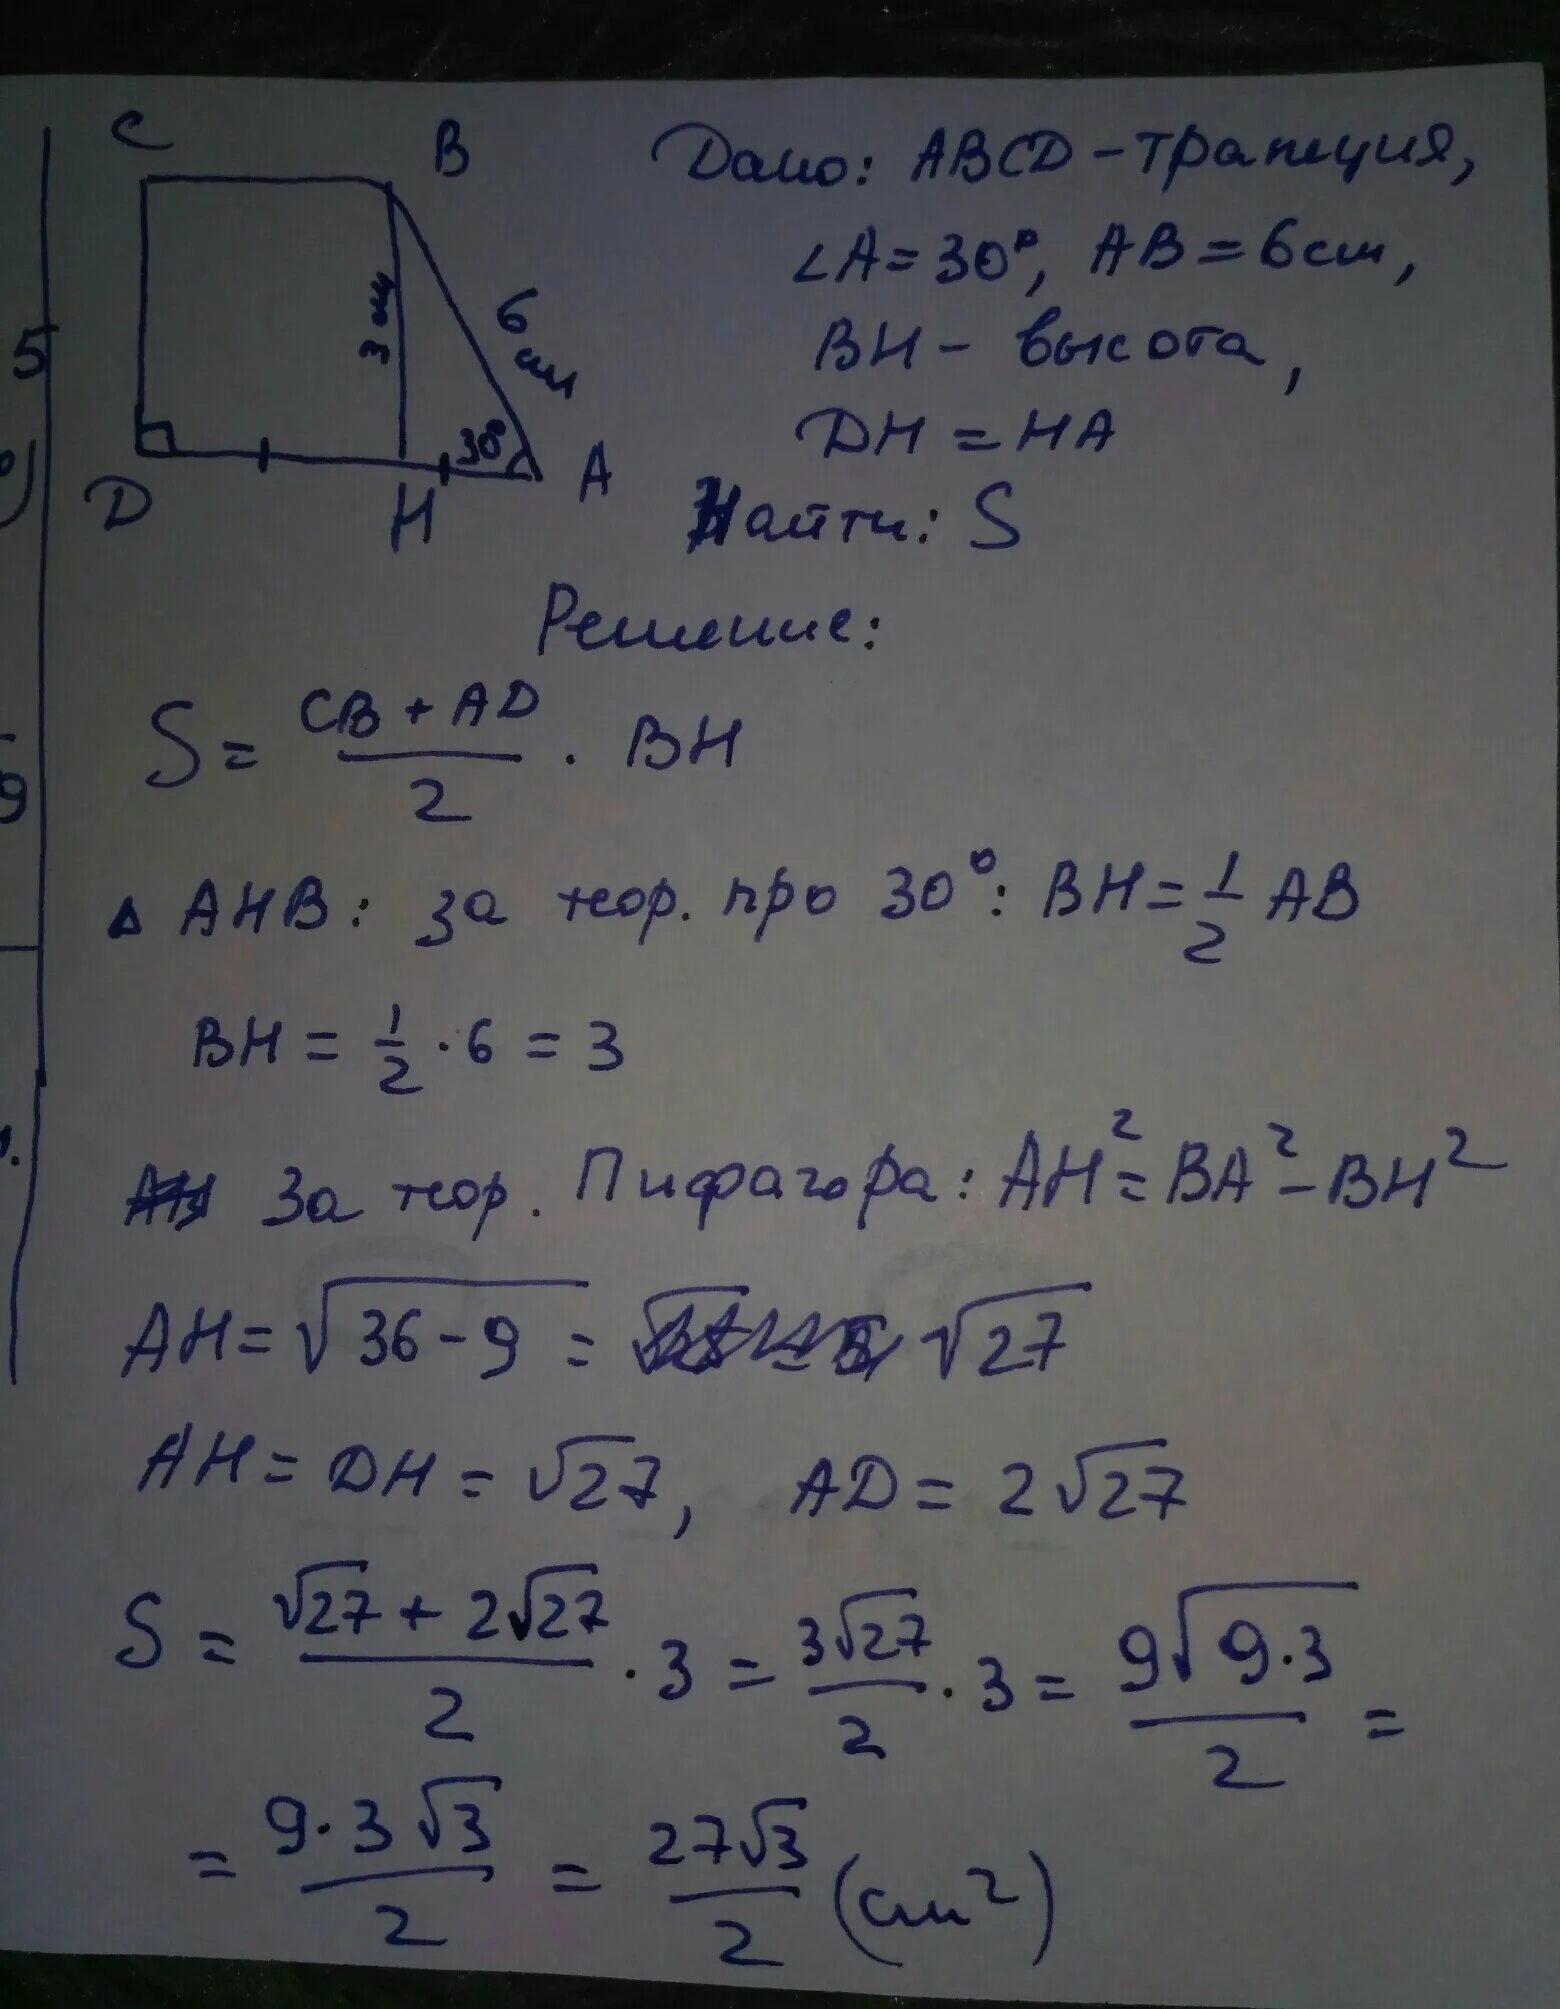 C
B
Дано: ABCD - трапеция,
∠A = 30°, AB = 6 см,
BH - высота,
DH = HA
Найти: S
3 см
6 см
30°
D
H
A
5
9
Решение:
S = (CB + AD)/2 · BH
△ AHB: за теор. про 30°: BH = 1/2 AB
BH = 1/2 · 6 = 3
За теор. Пифагора: AH² = BA² - BH²
AH = √(36 - 9) = √27
AH = DH = √27, AD = 2√27
S = (√27 + 2√27)/2 · 3 = 3√27/2 · 3 = 9√(9·3)/2 =
= 9·3√3/2 = 27√3/2 (см²)